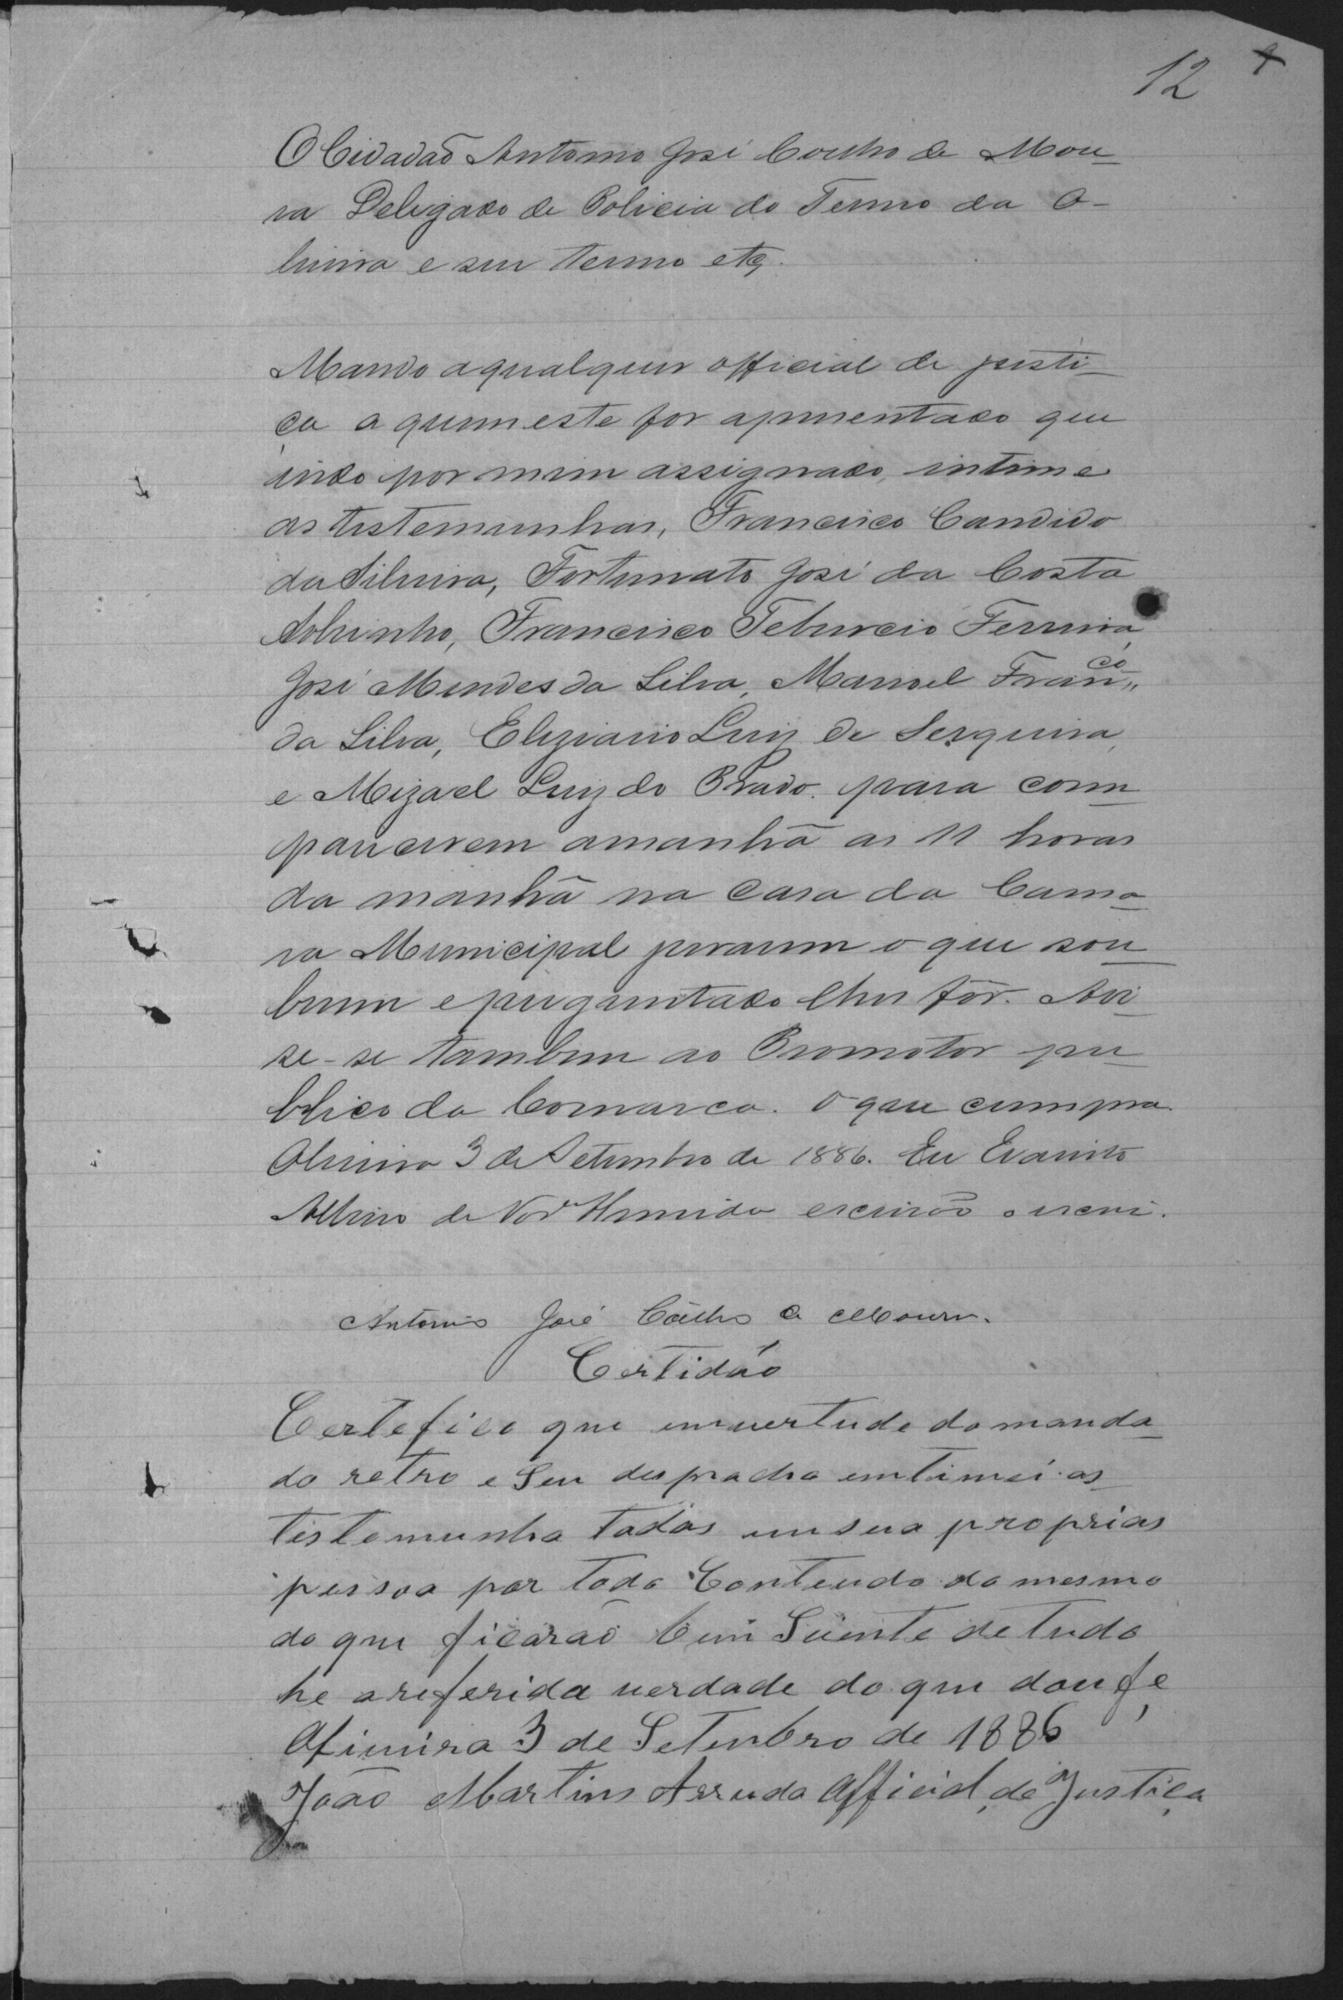 12
O Cidadaõ Antonio José Coelho de Mou-
ra Delegado de Policia do Termo da O-
liveira e seu termo etc.
Mando a qualquer official de justi-
ça a quem este for apresentado que
indo por mim assignado, intime
as testemunhas, Francisco Candido
da Silveira, Fortunato José da Costa
Sobrinho, Francisco Teburcio Ferreira,
José Mendes da Silva, Manoel Fran.co
da Silva, Eliziario Luiz de Serqueira,
e Mizael Luiz do Prado. para com-
parecerem amanhã as 11 horas
da manhã na casa da Cama-
ra Municipal jurarem o que sou-
berem e perguntado lhes fôr. Avi-
se-se tambem ao Promotor pu-
blico da Comarca. O que cumpra.
Oliveira 3 de Setembro de 1886. Eu Evaristo
Albino de escrivaõ o escrevi.
Antonio José Coelho de Moura.
Certidão
Certefico que em vertude do manda-
do retro e Seu despacho emtimei as
testemunha todas em sua proprias
pessoa por todo Conteudo do mesmo
do que ficaraõ bem Siente de tudo
he a referida verdade do que dou fe
Oliveira 3 de Setembro de 1886
João Martins Arruda Official de Justiça